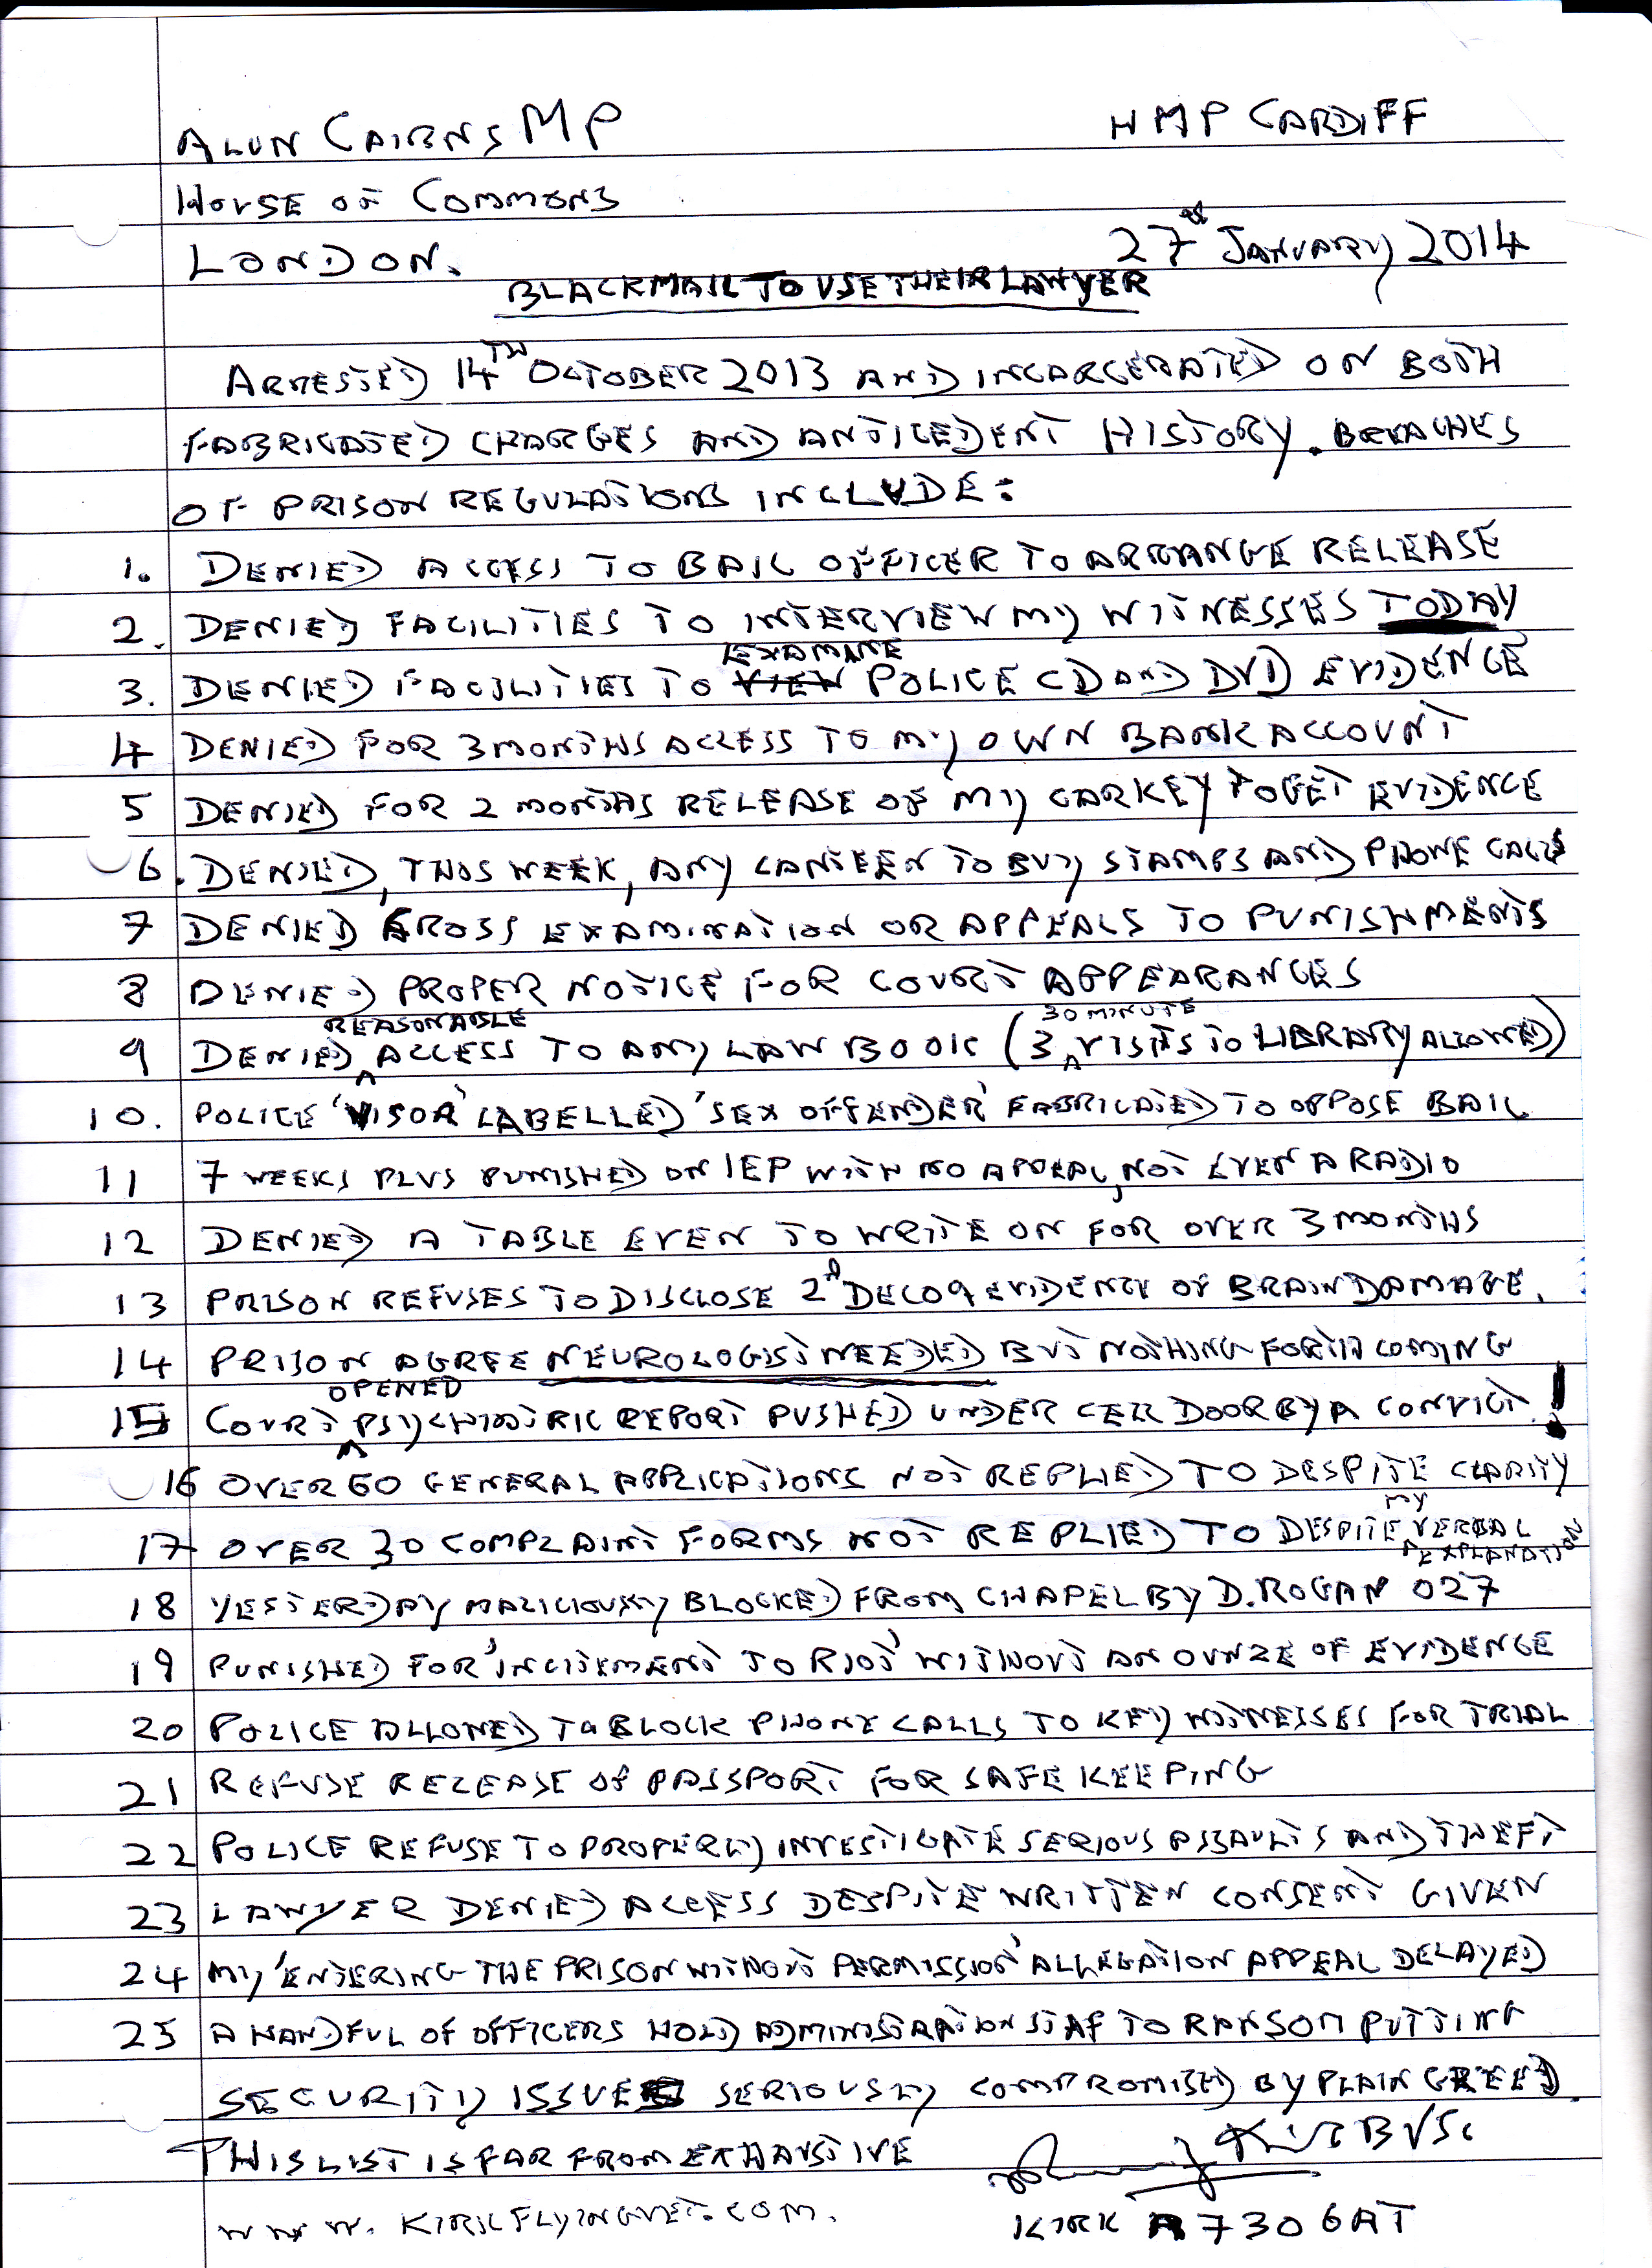 ALUN CAIRNS MP
HMP CARDIFF
HOUSE OF COMMONS
LONDON.
27 JANUARY 2014
BLACKMAIL TO USE THEIR LAWYER
ARRESTED 14TH OCTOBER 2013 AND INCARCERATED ON BOTH
FABRICATED CHARGES AND ANTICEDENT HISTORY. BREACHES
OF PRISON REGULATIONS INCLUDE:
1. DENIED ACCESS TO BAIL OFFICER TO ARRANGE RELEASE
2. DENIED FACILITIES TO INTERVIEW MY WITNESSES TODAY
3. DENIED FACILITIES TO VIEW EXAMINE POLICE CD AND DVD EVIDENCE
4 DENIED FOR 3 MONTHS ACCESS TO MY OWN BANK ACCOUNT
5 DENIED FOR 2 MONTHS RELEASE OF MY CAR KEY TO GET EVIDENCE
6. DENIED, THIS WEEK, ANY CANTEEN TO BUY STAMPS AND PHONE CALLS
7 DENIED CROSS EXAMINATION OR APPEALS TO PUNISHMENTS
8 DENIED PROPER NOTICE FOR COURT APPEARANCES
9 DENIED REASONABLE ACCESS TO ANY LAW BOOK (3 30 MINUTE VISITS TO LIBRARY ALLOWED)
10. POLICE 'VISOR' LABELLED 'SEX OFFENDER' FABRICATED TO OPPOSE BAIL
11 7 WEEKS PLUS PUNISHED ON IEP WITH NO APPEAL, NOT EVEN A RADIO
12 DENIED A TABLE EVEN TO WRITE ON FOR OVER 3 MONTHS
13 PRISON REFUSES TO DISCLOSE 2nd DEC 09 EVIDENCE OF BRAIN DAMAGE.
14 PRISON AGREE NEUROLOGIST NEEDED BUT NOTHING FORTH COMING
15 COURT OPENED PSYCHIATRIC REPORT PUSHED UNDER CELL DOOR BY A CONVICT!
16 OVER 60 GENERAL APPLICATIONS NOT REPLIED TO DESPITE CLARITY
17 OVER 30 COMPLAINT FORMS NOT REPLIED TO DESPITE MY VERBAL EXPLANATION
18 YESTERDAY MALICIOUSLY BLOCKED FROM CHAPEL BY D. ROGAN 027
19 PUNISHED FOR 'INCITEMENT TO RIOT' WITHOUT AN OUNZE OF EVIDENCE
20 POLICE ALLOWED TO BLOCK PHONE CALLS TO KEY WITNESSES FOR TRIAL
21 REFUSE RELEASE OF PASSPORT FOR SAFE KEEPING
22 POLICE REFUSE TO PROPERLY INVESTIGATE SERIOUS ASSAULTS AND THEFT
23 LAWYER DENIED ACCESS DESPITE WRITTEN CONSENT GIVEN
24 MY 'ENTERING THE PRISON WITHOUT PERMISSION' ALLEGATION APPEAL DELAYED
25 A HANDFUL OF OFFICERS HOLD ADMINISTRATION STAF TO RANSOM PUTTING
SECURITY ISSUES SERIOUSLY COMPROMISED BY PLAIN GREED.
THIS LIST IS FAR FROM EXHAUSTIVE
Kirk BVSc
www.KIRKFLYINGVET.COM.
KIRK A7306AT